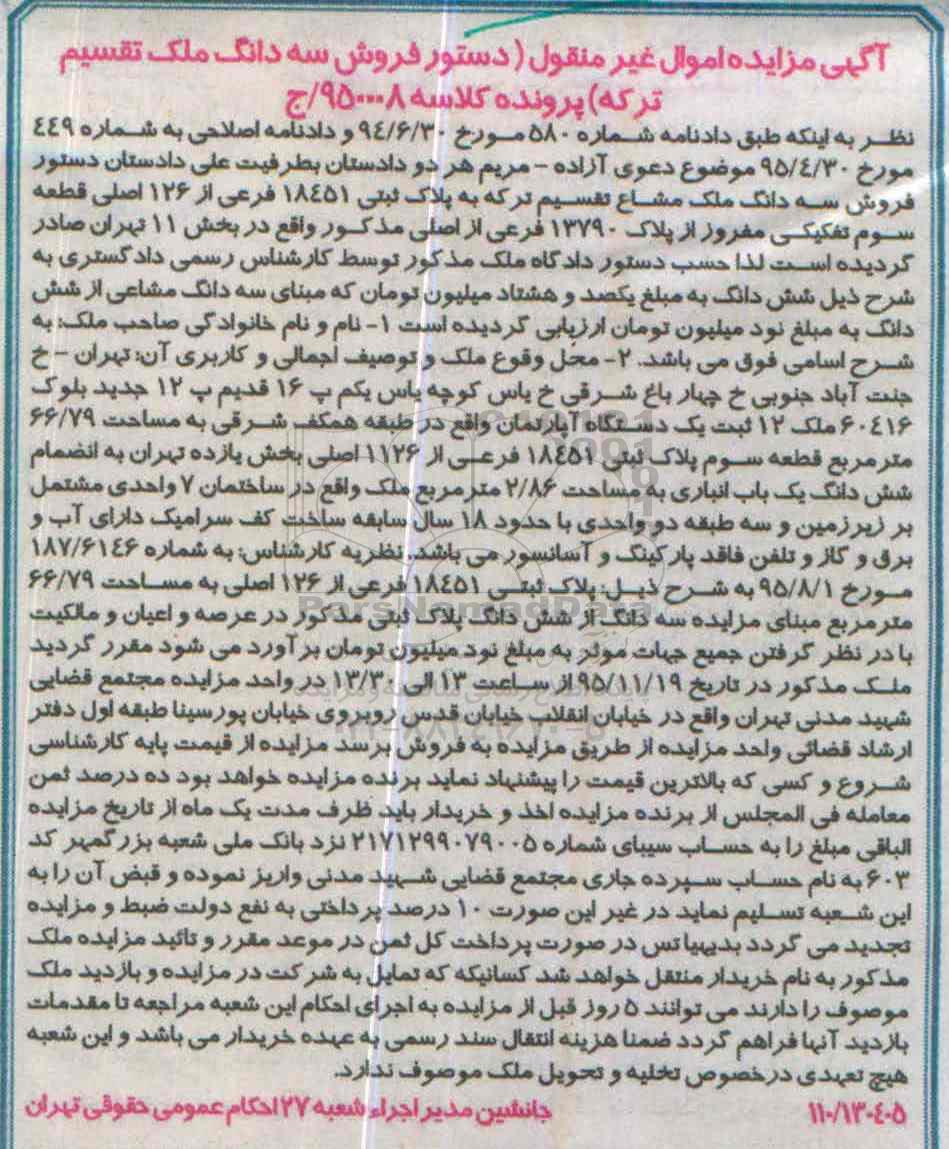 آگهی مزایده اموال غیر منقول (دستور فروش سه دانگ ملک تقسیم
ترکه) پرونده کلاسه ۹۵۰۰۰۸/ج
نظر به اینکه طبق دادنامه شماره ۵۸۰ مورخ ۹۴/۶/۳۰ و دادنامه اصلاحی به شماره ۴۴۹
مورخ ۹۵/۴/۳۰ موضوع دعوی آزاده - مریم هر دو دادستان بطرفیت علی دادستان دستور
فروش سه دانگ ملک مشاع تقسیم ترکه به پلاک ثبتی ۱۸۴۵۱ فرعی از ۱۲۶ اصلی قطعه
سوم تفکیکی مفروز از پلاک ۱۳۷۹۰ فرعی از اصلی مذکور واقع در بخش ۱۱ تهران صادر
گردیده است لذا حسب دستور دادگاه ملک مذکور توسط کارشناس رسمی دادگستری به
شرح ذیل شش دانگ به مبلغ یکصد و هشتاد میلیون تومان که مبنای سه دانگ مشاعی از شش
دانگ به مبلغ نود میلیون تومان ارزیابی گردیده است ۱- نام و نام خانوادگی صاحب ملک: به
شرح اسامی فوق می باشد. ۲- محل وقوع ملک و توصیف اجمالی و کاربری آن: تهران - خ
جنت آباد جنوبی خ چهار باغ شرقی خ یاس کوچه یاس یکم پ ۱۶ قدیم پ ۱۲ جدید بلوک
۶۰۴۱۶ ملک ۱۲ ثبت یک دستگاه آپارتمان واقع در طبقه همکف شرقی به مساحت ۶۶/۷۹
متر مربع قطعه سوم پلاک ثبتی ۱۸۴۵۱ فرعی از ۱۱۲۶ اصلی بخش یازده تهران به انضمام
شش دانگ یک باب انباری به مساحت ۲/۸۶ متر مربع ملک واقع در ساختمان ۷ واحدی مشتمل
بر زیرزمین و سه طبقه دو واحدی با حدود ۱۸ سال سابقه ساخت کف سرامیک دارای آب و
برق و گاز و تلفن فاقد پارکینگ و آسانسور می باشد. نظریه کارشناس: به شماره ۱۸۷/۶۱۴۶
مورخ ۹۵/۸/۱ به شرح ذیل: پلاک ثبتی ۱۸۴۵۱ فرعی از ۱۲۶ اصلی به مساحت ۶۶/۷۹
متر مربع مبنای مزایده سه دانگ از شش دانگ پلاک ثبتی مذکور در عرصه و اعیان و مالکیت
با در نظر گرفتن جمیع جهات موثر به مبلغ نود میلیون تومان بر آورد می شود مقرر گردید
ملک مذکور در تاریخ ۹۵/۱۱/۱۹ از ساعت ۱۳ الی ۱۳/۳۰ در واحد مزایده مجتمع قضایی
شهید مدنی تهران واقع در خیابان انقلاب خیابان قدس روبروی خیابان پورسینا طبقه اول دفتر
ارشاد قضائی واحد مزایده از طریق مزایده به فروش برسد مزایده از قیمت پایه کارشناسی
شروع و کسی که بالاترین قیمت را پیشنهاد نماید برنده مزایده خواهد بود ده درصد ثمن
معامله فی المجلس از برنده مزایده اخذ و خریدار باید ظرف مدت یک ماه از تاریخ مزایده
الباقی مبلغ را به حساب سیبای شماره ۲۱۷۱۲۹۹۰۷۹۰۰۵ نزد بانک ملی شعبه بزرگمهر کد
۶۰۳ به نام حساب سپرده جاری مجتمع قضایی شهید مدنی واریز نموده و قبض آن را به
این شعبه تسلیم نماید در غیر این صورت ۱۰ درصد پرداختی به نفع دولت ضبط و مزایده
تجدید می گردد بدیهیاتس در صورت پرداخت کل ثمن در موعد مقرر و تائید مزایده ملک
مذکور به نام خریدار منتقل خواهد شد کسانیکه که تمایل به شرکت در مزایده و بازدید ملک
موصوف را دارند می توانند ۵ روز قبل از مزایده به اجرای احکام این شعبه مراجعه تا مقدمات
بازدید آنها فراهم گردد ضمنا هزینه انتقال سند رسمی به عهده خریدار می باشد و این شعبه
هیچ تعهدی درخصوص تخلیه و تحویل ملک موصوف ندارد.
۱۱۰/۱۳۰۴۰۵ جانشین مدیر اجراء شعبه ۲۷ احکام عمومی حقوقی تهران
ParsNamadData